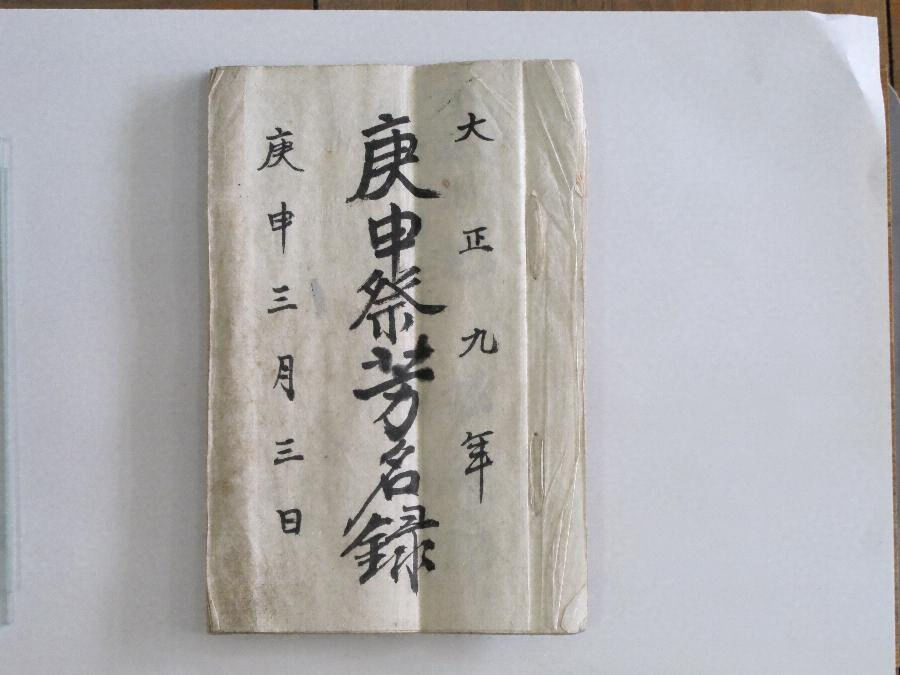 大正九年
庚申祭芳名録
庚申三月三日